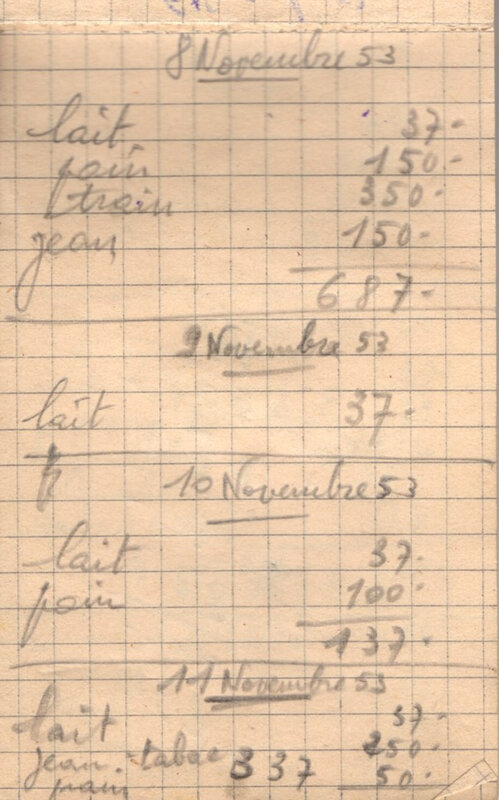 8 Novembre 53
lait 37-
pain 150-
train 350-
jean 150-
687-
9 Novembre 53
lait 37-
10 Novembre 53
lait 37-
pain 100-
137-
11 Novembre 53
lait 37-
jean-tabac 250-
pain 337 50-